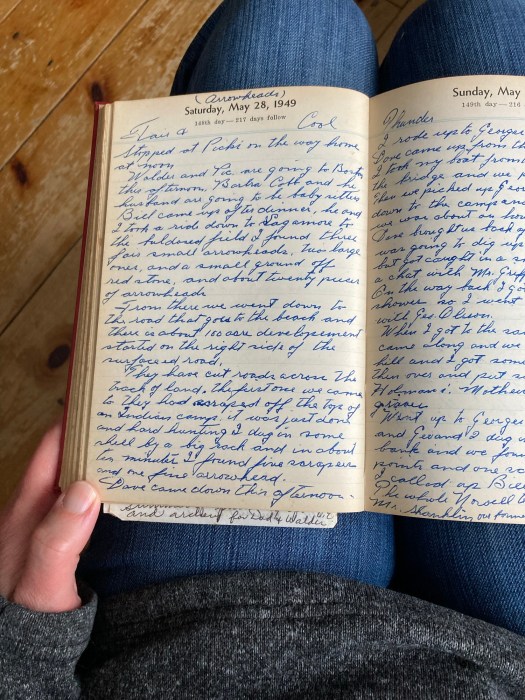 (Arrowheads)
Saturday, May 28, 1949
148th day—217 days follow
Fair & Cool
Stopped at Picki's on the way home
at noon
Walder and Pic are going to
this afternoon, Barba Cobb and he
husband are going to be baby sitters
Bill came up after dinner, he and
I took a ride down to Sagamore to
the buldosed field I found three
fair small arrowheads, two large
ones, and a small ground off
red stone, and about twenty pieces
of arrowheads
From there we went down to
the road that goes to the beach and
there is about 100 acre developement
started on the right side of the
surfaced road.
They have cut roads across the
track of land, the first one we came
to they had scraped off the tops of
an Indian camp, it was just done
and hard hunting I dug in some
shell by a big rock and in about
ten minutes I found five scrapers
and one fine arrowhead.
Dave came down this afternoon.
and for Dad & Walder
Sunday, May
149th day—216
Thunder
I rode up to Georges
Dave came up from th
I took my boat from
the bridge and we p
then we picked up Geo
down to the
we was about an hou
Dave brought us back a
was going to dig up
but got caught in a s
a chat with Mr. Grif
On the way back I go
shower so I went
with Geo Olsen.
When I got to the
came along and we
hill and I got som
then over and put s
Holman's. Mothers
grave
I Went up to Georges
and Geo and I dug
bank and we fou
points and one sc
I called up Bill
The whole
Mr. Shanklin our forme